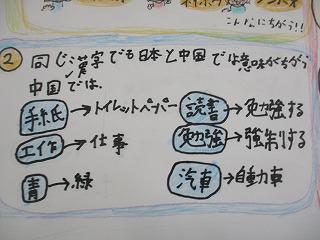 こんなにちがう!!
② 同じ漢字でも日本と中国では意味がちがう
中国では、
手紙→トイレットペーパー 読書→勉強する
工作→仕事 勉強→強制する
青→緑 汽車→自動車